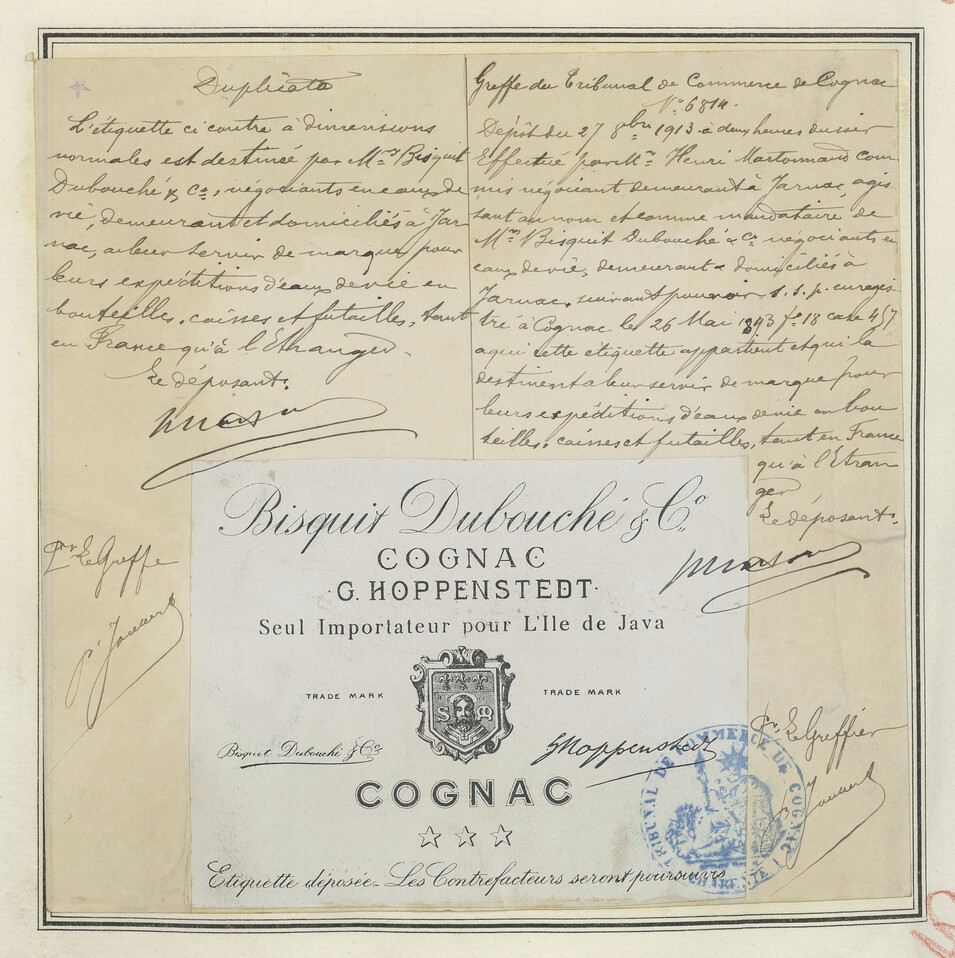 Duplicata
L'étiquette ci contre à dimensions
normales est destinée par Mrs Bisquit
Dubouché & Co, négociants en eaux de
vie, demeurant et domiciliés à Jar-
nac, à leur servir de marque pour
leurs expéditions d'eaux de vie en
bouteilles, caisses et futailles, tant
en France qu'à l'Etranger.
Le déposant.
Pr Le Greffe
Greffe du Tribunal de Commerce de Cognac
No 6814.
Dépôt du 27 8bre 1913 à deux heures du soir
Effectué par Mr Henri com-
mis négociant demeurant à Jarnac, agis-
sant au nom et comme mandataire de
Mrs Bisquit Dubouché & Co négociants en
eaux de vie, demeurant & domiciliés à
Jarnac, suivant pouvoir s.s.p. enregis-
tré à Cognac le 26 Mai 1893 fo 18 case 457
à qui cette étiquette appartient et qui la
destinent à leur servir de marque pour
leurs expéditions d'eaux de vie en bou
teilles, caisses et futailles, tant en France
qu'à l'Etran
ger
Le déposant.
Bisquit Dubouché & Co.
COGNAC
·G. HOPPENSTEDT·
Seul Importateur pour L'Ile de Java
TRADE MARK
TRADE MARK
Bisquit Dubouché & Co
GHoppenstedt
COGNAC
Etiquette déposée_ Les Contrefacteurs seront poursuivis
Pr Le Greffier
TRIBUNAL DE COMMERCE DE COGNAC